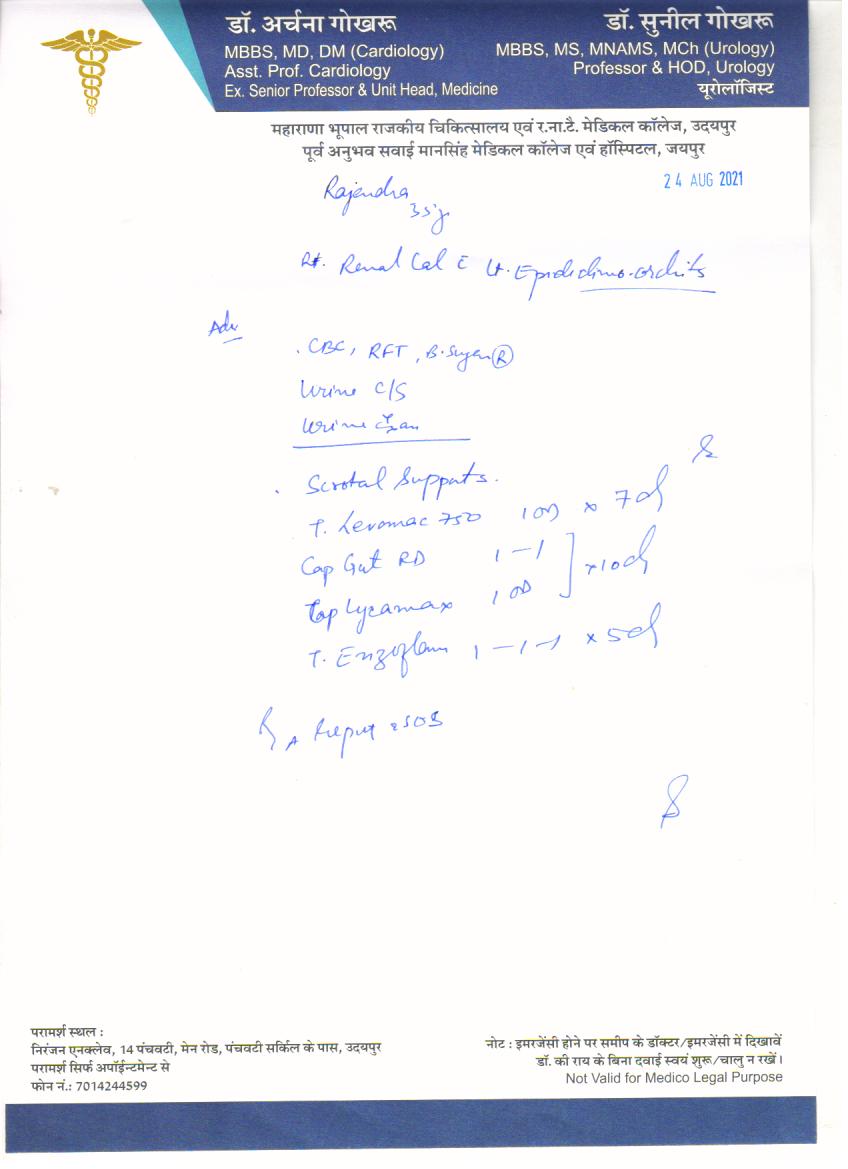 डॉ. अर्चना गोखरू
MBBS, MD, DM (Cardiology)
Asst. Prof. Cardiology
Ex. Senior Professor & Unit Head, Medicine
डॉ. सुनील गोखरू
MBBS, MS, MNAMS, MCh (Urology)
Professor & HOD, Urology
यूरोलॉजिस्ट
महाराणा भूपाल राजकीय चिकित्सालय एवं र.ना.टै. मेडिकल कॉलेज, उदयपुर
पूर्व अनुभव सवाई मानसिंह मेडिकल कॉलेज एवं हॉस्पिटल, जयपुर
24 AUG 2021
Rajendra
35y
Rt. Renal Cal c Lt. Epididimo-orchits
Adv
. CBC, RFT, B. Sugar (R)
Urine C/S
Urine
. Scrotal Supports.
T. Levomac 750 1 OD x 7d
Cap Gut RD 1-1
Cap Lycamax 1 OD ] x10d
T. Enzoflam 1-1-1 x 5d
SOS
परामर्श स्थल :
निरंजन एनक्लेव, 14 पंचवटी, मेन रोड, पंचवटी सर्किल के पास, उदयपुर
परामर्श सिर्फ अपॉईन्टमेन्ट से
फोन नं.: 7014244599
नोट : इमरजेंसी होने पर समीप के डॉक्टर/इमरजेंसी में दिखावें
डॉ. की राय के बिना दवाई स्वयं शुरू/चालु न रखें।
Not Valid for Medico Legal Purpose